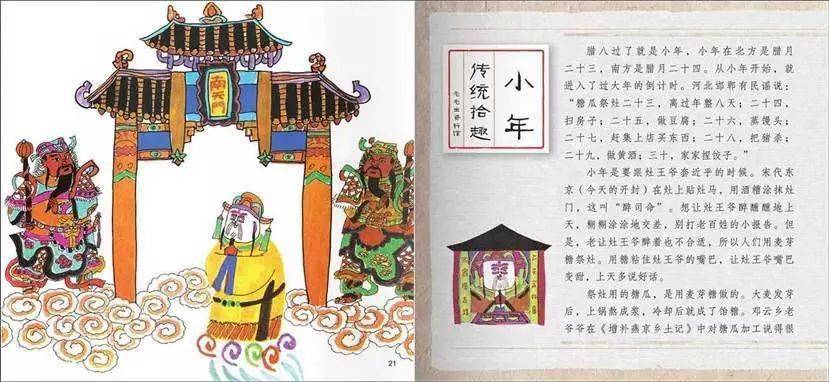 南天門
21
小年
传统拾趣
毛毛虫资料馆
腊八过了就是小年，小年在北方是腊月
二十三，南方是腊月二十四。从小年开始，就
进入了过大年的倒计时。河北邯郸有民谣说：
“糖瓜祭灶二十三，离过年整八天；二十四，
扫房子；二十五，做豆腐；二十六，蒸馒头；
二十七，赶集上店买东西；二十八，把猪杀；
二十九，做黄酒；三十，家家捏饺子。”
小年是要跟灶王爷套近乎的时候。宋代东
京（今天的开封）在灶上贴灶马，用酒糟涂抹灶
门，这叫“醉司命”。想让灶王爷醉醺醺地上
天，糊糊涂涂地交差，别打老百姓的小报告。但
是，老让灶王爷醉着也不合适，所以人们用麦芽
糖祭灶。用糖粘住灶王爷的嘴巴，让灶王爷嘴巴
变甜，上天多说好话。
祭灶用的糖瓜，是用麦芽糖做的。大麦发芽
后，上锅熬成浆，冷却后就成了饴糖。邓云乡老
爷爷在《增补燕京乡土记》中对糖瓜加工说得很